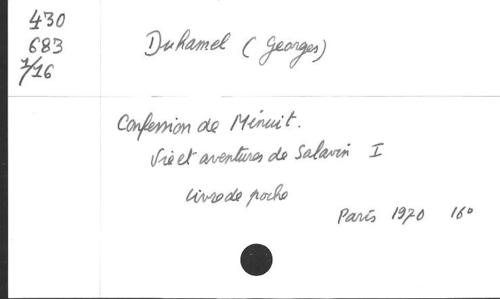 430
683
1/16
Duhamel (Georges)
Confession de Minuit.
Vie et aventures de Salavin I
Livre de poche
Paris 1970 16°